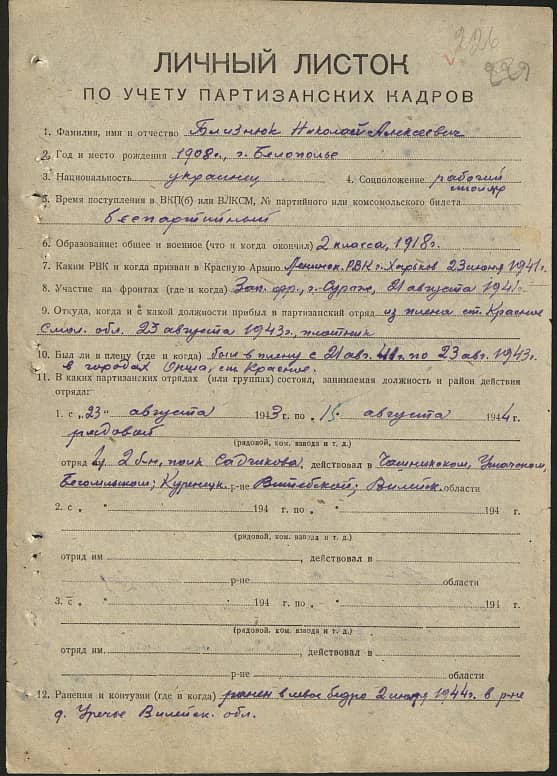 226
229
ЛИЧНЫЙ ЛИСТОК
ПО УЧЕТУ ПАРТИЗАНСКИХ КАДРОВ
1. Фамилия, имя и отчество Близнюк Николай Алексеевич
2. Год и место рождения 1908г., г. Белополье
3. Национальность украинец 4. Соцположение рабочий
столяр
5. Время поступления в ВКП(б) или ВЛКСМ, № партийного или комсомольского билета
беспартийный
6. Образование: общее и военное (что и когда окончил) 2 класса, 1918г.
7. Каким РВК и когда призван в Красную Армию Ленинск. РВК г. Харьков 23 июня 1941г.
8. Участие на фронтах (где и когда) Зап. фр., г. Сураж, 21 августа 1941г.
9. Откуда, когда и с какой должности прибыл в партизанский отряд из плена ст. Красное
Смол. обл. 23 августа 1943г., плотник
10. Был ли в плену (где и когда) был в плену с 21 авг. 41г. по 23 авг. 1943г.
в городах Орша, ст. Красное.
11. В каких партизанских отрядах (или группах) состоял, занимаемая должность и район действия
отряда:
1. с „23" августа 1943 г. по „15 августа 1944 г.
рядовой
(рядовой, ком. взвода и т. д.)
отряд 2 б-н, полк Садчикова, действовал в Чашникском, Ушачском,
Бегомльском; Куренецк. р-не Витебской; Вилейск. области
2. с „ " 194 г. по „ " 194 г.
(рядовой, ком. взвода и т. д.)
отряд им , действовал в
р-не области
3. с „ " 194 г. по „ " 194 г.
(рядовой, ком. взвода и т. д.)
отряд им. , действовал в
р-не области
12. Ранения и контузии (где и когда) ранен в левое бедро 2 1944г. в р-не
д. Уречье Вилейск. обл.